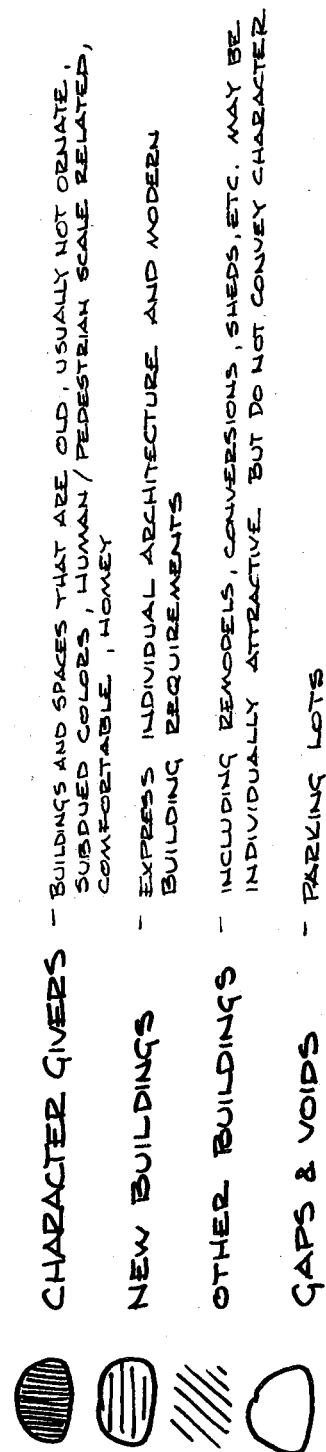 CHARACTER GIVERS - BUILDINGS AND SPACES THAT ARE OLD, USUALLY NOT ORNATE,
SUBDUED COLORS, HUMAN/PEDESTRIAN SCALE RELATED,
COMFORTABLE, HOMEY
NEW BUILDINGS - EXPRESS INDIVIDUAL ARCHITECTURE AND MODERN
BUILDING REQUIREMENTS
OTHER BUILDINGS - INCLUDING REMODELS, CONVERSIONS, SHEDS, ETC. MAY BE
INDIVIDUALLY ATTRACTIVE BUT DO NOT CONVEY CHARACTER
GAPS & VOIDS - PARKING LOTS